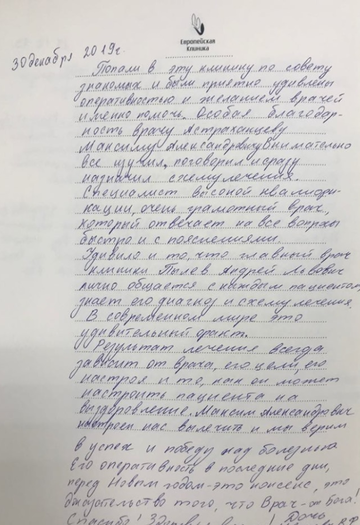 Европейская
Клиника
30 декабря 2019г
Попали в эту клинику по совету
знакомых и были приятно удивлены
оперативностью и желанием врачей
именно помочь. Особая благодар-
ность врачу Астраханцеву
Максиму Александровичу внимательно
все изучил, поговорил и сразу
назначил схему лечения.
Специалист высокой квалифи-
кации, очень грамотный врач,
который отвечает на все вопросы
быстро и с пояснениями.
Удивило и то, что главный врач
клиники Пылев Андрей Львович
лично общается с каждым пациентом,
знает его диагноз и схему лечения.
В современном мире это
удивительный факт.
Результат лечения всегда
зависит от врача, его цели, его
настроя и то, как он может
настроить пациента на
выздоровление. Максим Александрович
настроен нас вылечить и мы верим
в успех и победу над болезнью
Его оперативность в последние дни,
перед Новым годом - это нонсенс, это
доказательство того, что Врач - от Бога!
Спасибо! Дочь